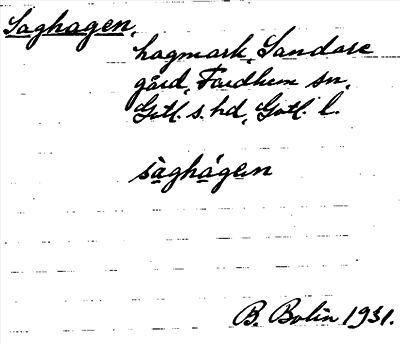 Saghagen,
hagmark, Sandare
gård, Fardhem sn,
Gotl. s. hd, Gotl. l.
sàghágen
B. Bolin 1931.